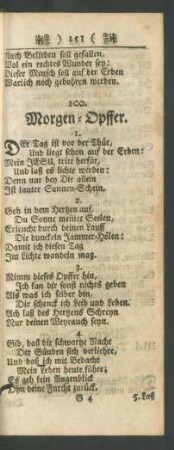 ) 151 (
Nach Belieben soll gefallen,
Vol ein rechtes Wunder sey:
Dieser Mensch soll auf der Erden
Warlich noch gebohren werden.
100.
Morgen-Opffer.
1.
DEr Tag ist vor der Thür,
Und liegt schon auf der Erden:
Mein JESU, tritt herfür,
Und laß es lichte werden:
Denn nur bey Dir allein
Ist lauter Sonnen-Schein.
2.
Geh in dem Hertzen auf,
Du Sonne meiner Seelen,
Erleucht durch deinen Lauff
Die dunckeln Jammer-Hölen:
Damit ich diesen Tag
Im Lichte wandeln mag.
3.
Nimm dieses Opffer hin,
Ich kan dir sonst nichts geben
Als was ich selber bin,
Dir schenck ich Leib und Leben.
Ach laß des Hertzens Schreyn
Nur deinen Weyrauch seyn.
4.
Gib, daß die schwartze Nacht
Der Sünden sich verliehre,
Und daß ich mit Bedacht
Mein Leben heute führe;
Es geh kein Augenblick
Ohn deine Furcht zurück.
G 4
5. Laß